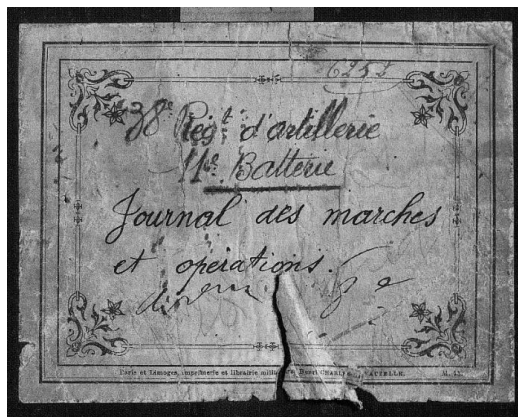 6253
38e Régt d'artillerie
11e Batterie
Journal des marches
et opérations.
Paris et Limoges, imprimerie et librairie Henri CHARLES-LAVAUZELLE.